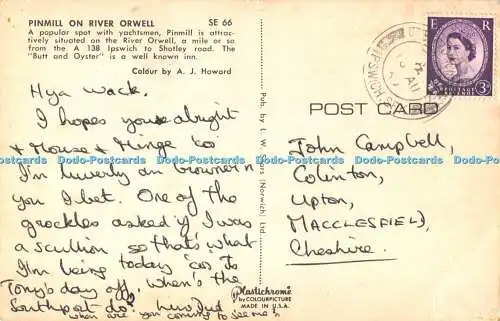 PINMILL ON RIVER ORWELL SE 66
A popular spot with yachtsmen, Pinmill is attrac-
tively situated on the River Orwell, a mile or so
from the A 138 Ipswich to Shotley road. The
"Butt and Oyster" is a well known inn.
Colour by A. J. Howard
Hya wack.
I hopes you alright
+ House + Minge 'cos
I'm luverly an brownern
you I bet. One of the
grockles asked if I was
a scullion so that's what
I'm being today 'cos its
Tony's day off. When's the
Southport do? Luv Jud
when are you coming to see me?
Pub. by L. W. (Norwich) Ltd.
Plastichrome
by COLOURPICTURE
MADE IN U.S.A.
POST CARD
E R
POSTAGE
REVENUE
3D
AU
John Campbell,
Colinton,
Upton,
MACCLESFIELD,
Cheshire.
Postcards Do-Postcards Do-Postcards Do-Postcards Do-Postcards